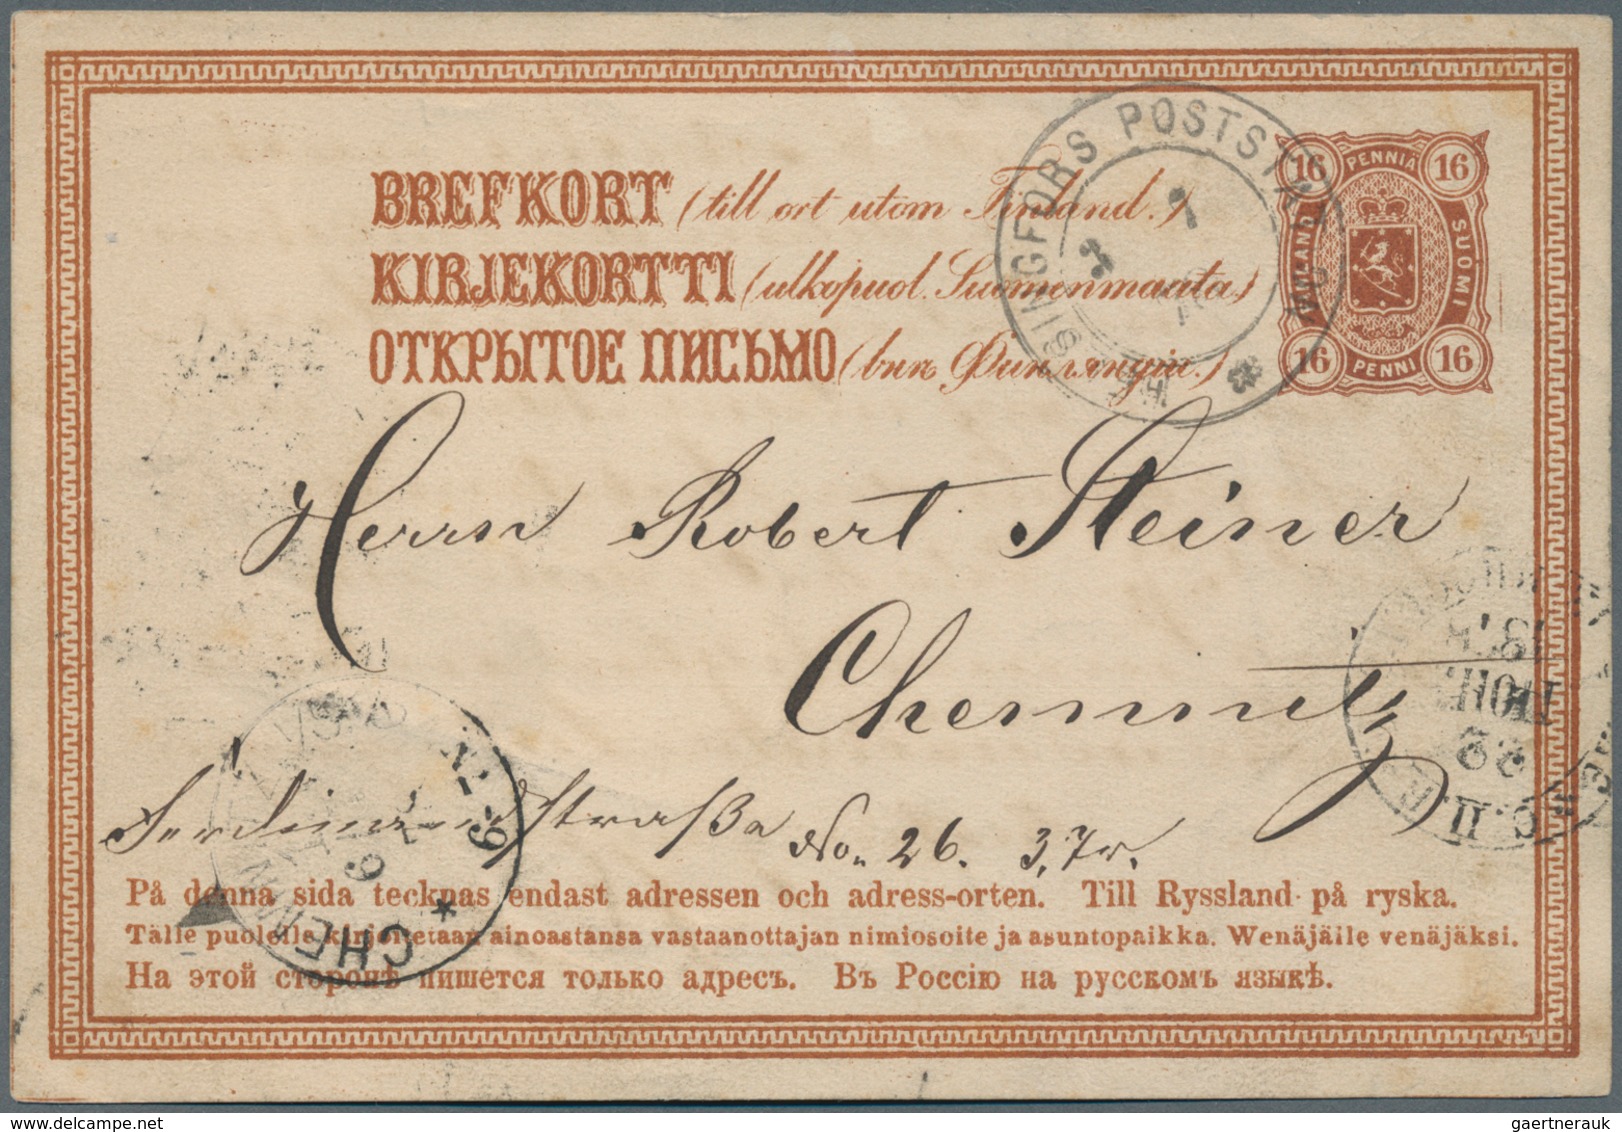 BREFKORT (till ort utom Finland.)
KIRJEKORTTI (ulkopuol. Suomenmaata)
ОТКРЫТОЕ ПИСЬМО (внѣ Финляндіи.)
16 PENNIÄ 16
FINLAND SUOMI
16 PENNI 16
HELSINGFORS POSTSTAT.
7
7
Herrn Robert Steiner
Chemnitz
Ferdinandstraße No. 26. 3, Tr.
CHEMNITZ
ІЮН.
С.П.
På denna sida tecknas endast adressen och adress-orten. Till Ryssland på ryska.
Tälle puolelle kirjoitetaan ainoastansa vastaanottajan nimiosoite ja asuntopaikka. Wenäjälle venäjäksi.
На этой сторонѣ пишется только адресъ. Въ Россію на русскомъ языкѣ.
gaertnerauk © delcampe.net